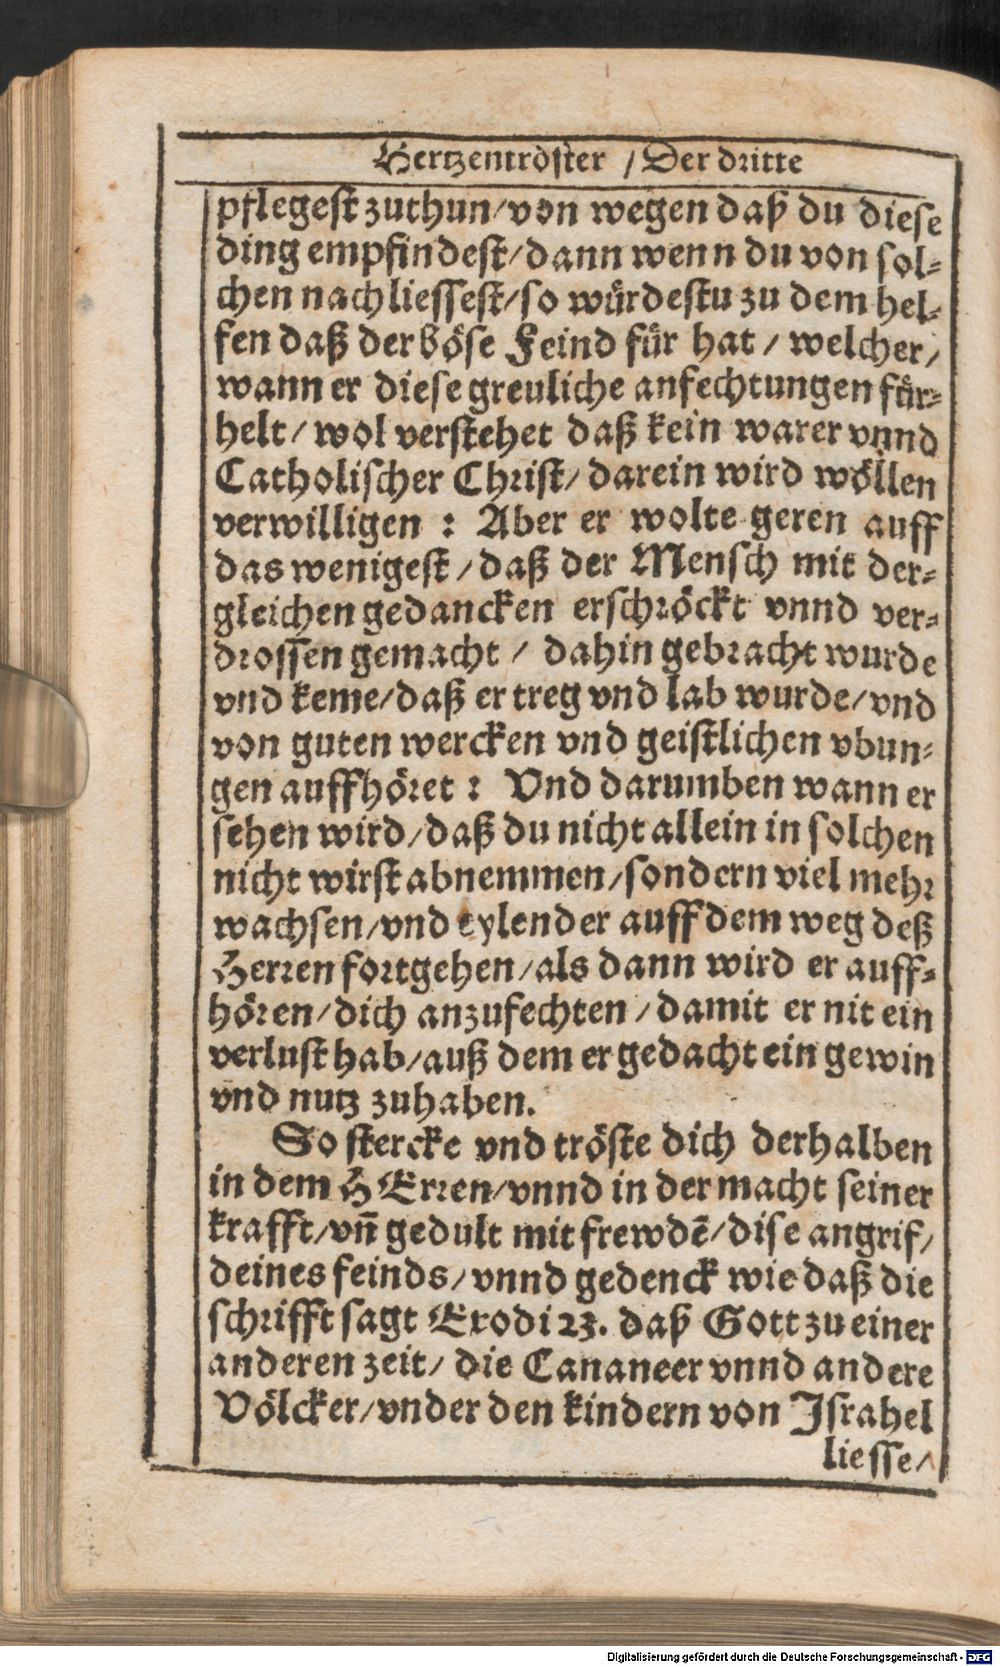 Hertzentröster / Der dritte
pflegest zuthun/von wegen daß du diese
ding empfindest/dann wenn du von sol-
chen nachliessest/so würdestu zu dem hel-
fen daß der böse Feind für hat / welcher/
wann er diese greuliche anfechtungen für-
helt/ wol verstehet daß kein warer vnnd
Catholischer Christ/ darein wird wöllen
verwilligen : Aber er wolte geren auff
das wenigest /daß der Mensch mit der-
gleichen gedancken erschröckt vnnd ver-
drossen gemacht / dahin gebracht wurde
vnd keme/daß er treg vnd lab wurde/vnd
von guten wercken vnd geistlichen vbun-
gen auffhöret : Vnd darumben wann er
sehen wird/daß du nicht allein in solchen
nicht wirst abnemmen/sondern viel mehr
wachsen/vnd eylender auff dem weg deß
Herren fortgehen/als dann wird er auff-
hören/dich anzufechten /damit er nit ein
verlust hab/auß dem er gedacht ein gewin
vnd nutz zuhaben.
So stercke vnd tröste dich derhalben
in dem HErren/vnnd in der macht seiner
krafft/vn̄ gedult mit frewdē/dise angrif/
deines feinds/vnnd gedenck wie daß die
schrifft sagt Exodi 23. daß Gott zu einer
anderen zeit/ die Cananeer vnnd andere
Völcker/vnder den kindern von Israhel
liesse/
Digitalisierung gefördert durch die Deutsche Forschungsgemeinschaft - DFG